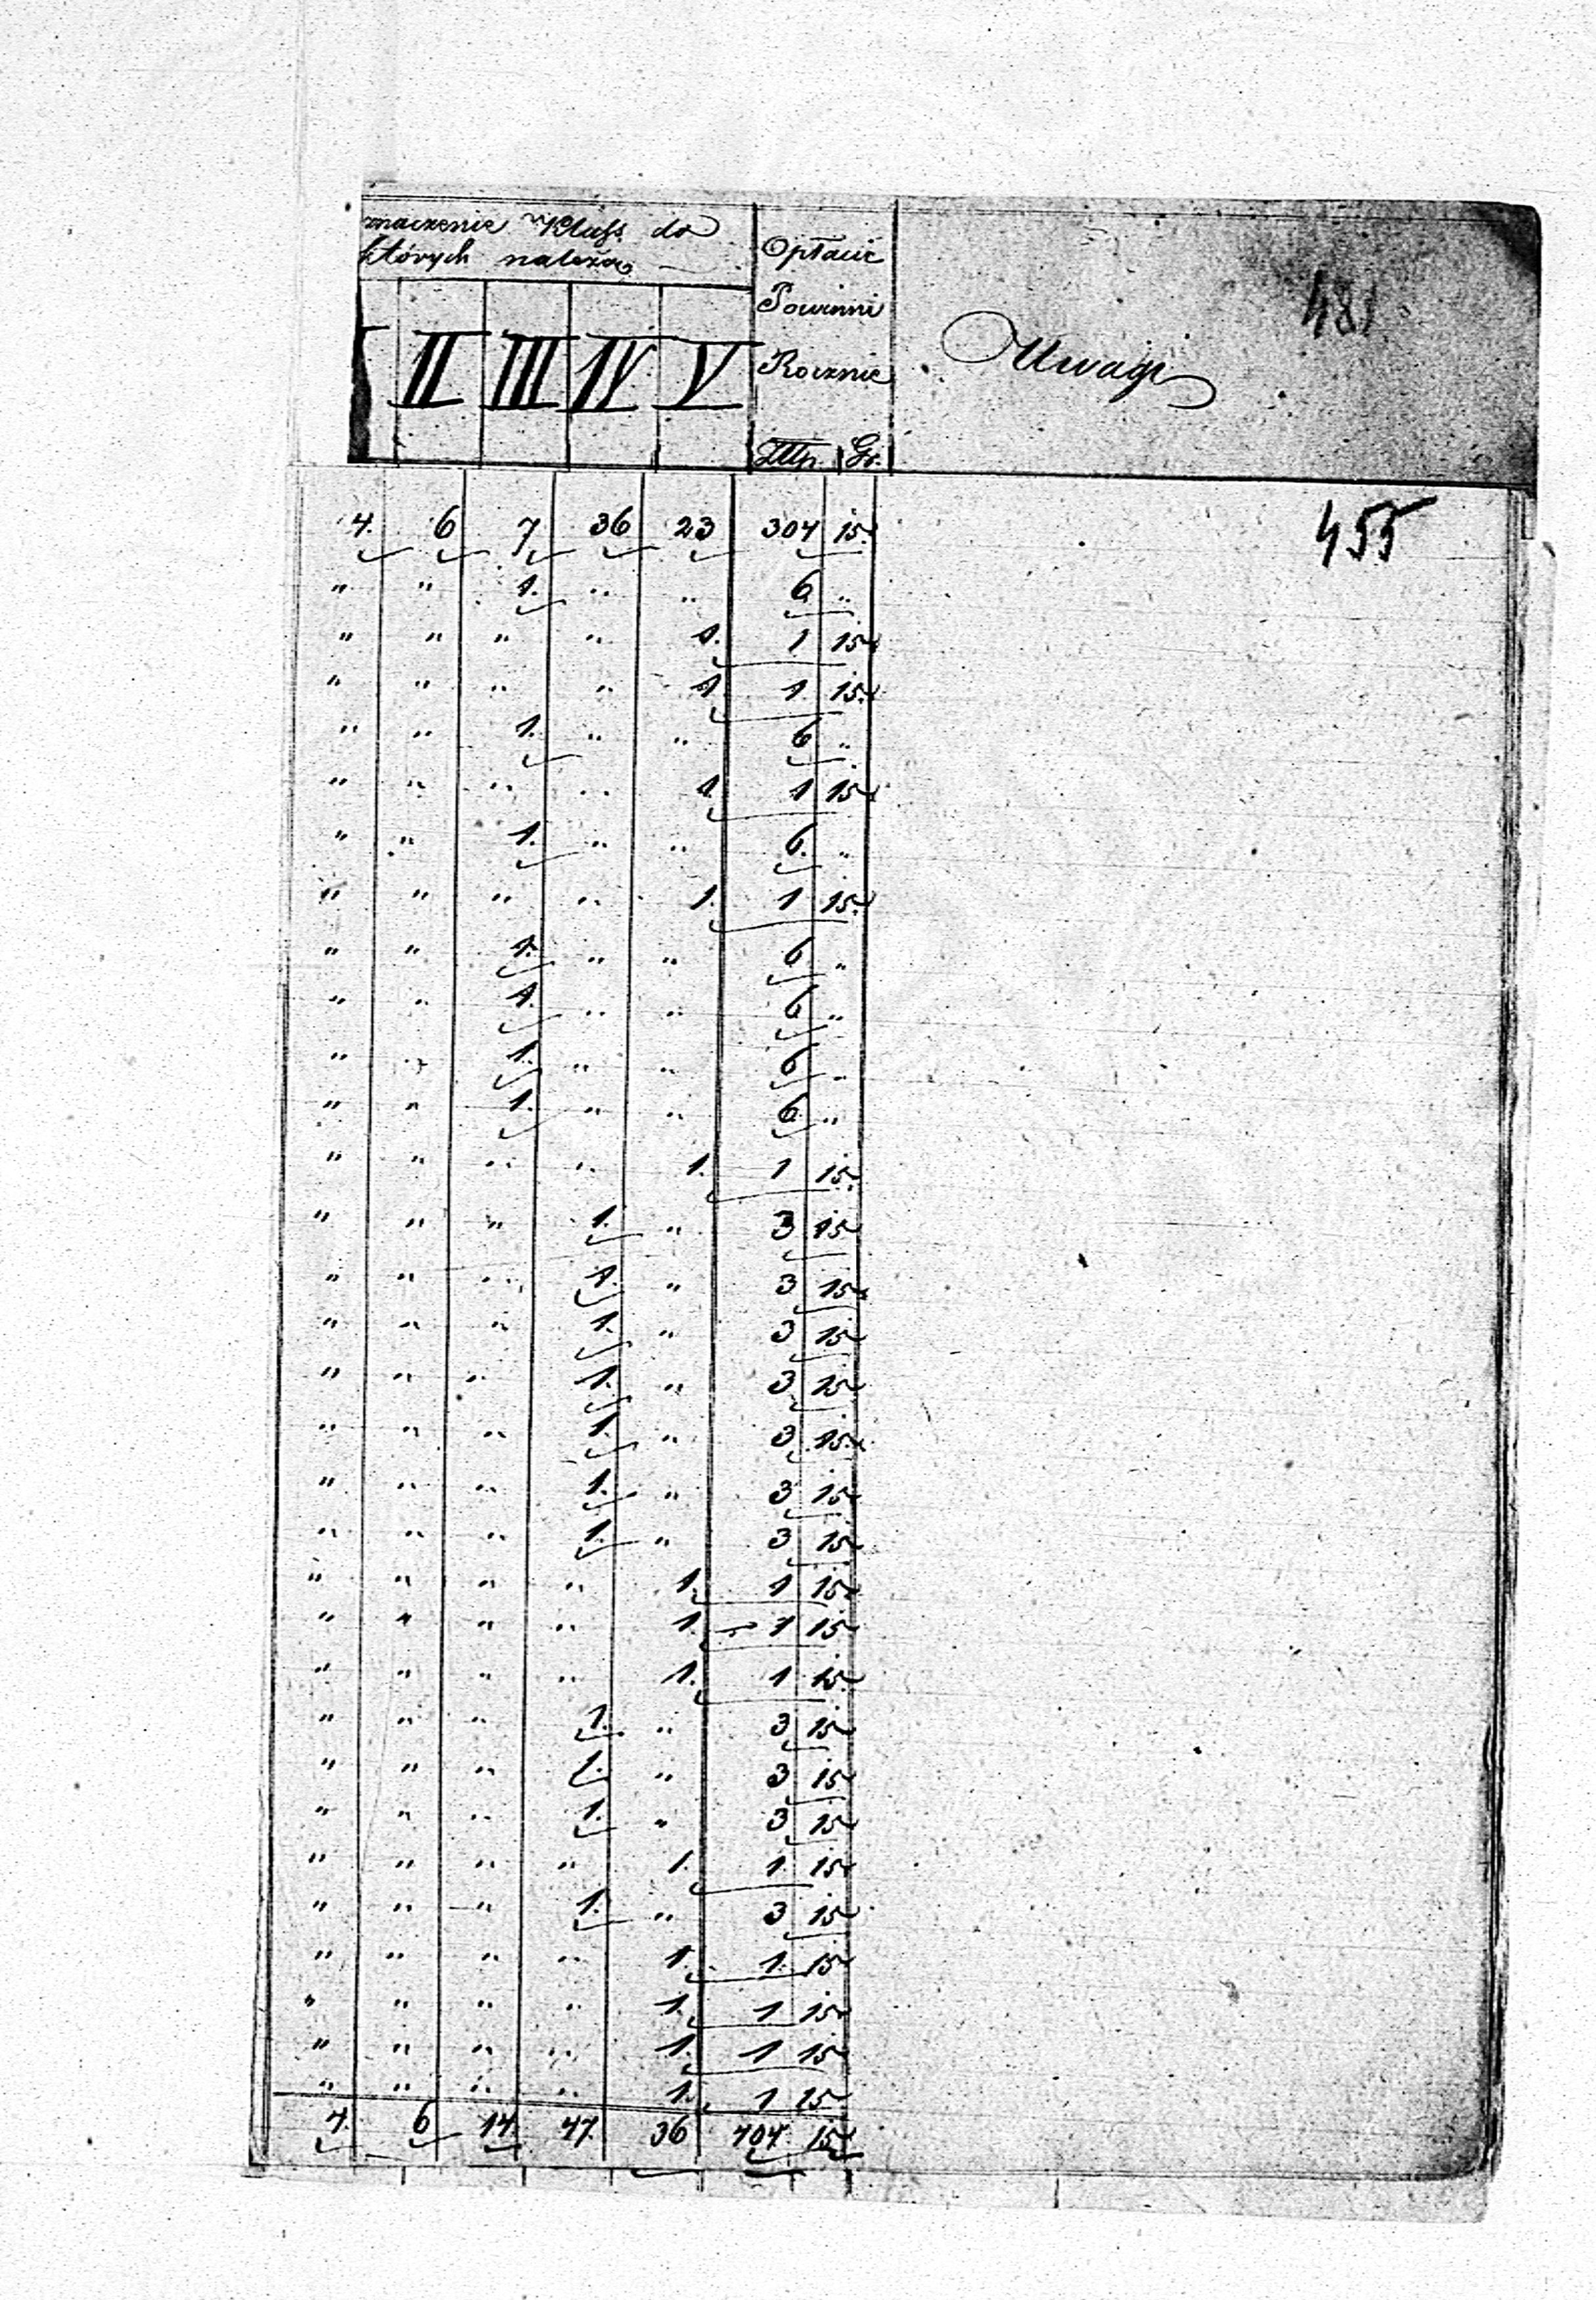 znaczenie Klass do
których należą
Opłacić
Powinni
Rocznie
Uwagi
481
II III IV V
Złlp. Gr.
455
4. 6 7 36 23 304 15.
" " 1. " " 6 "
" " " " 1. 1 15
" " " " 1 1. 15.
" " 1. " " 6 "
" " " " 1. 1 15
" " 1. " " 6. "
" " " " 1. 1 15.
" " 1. " " 6 "
" " 1. " " 6 "
" " 1. " " 6 "
" " 1. " " 6 "
" " " " 1. 1 15.
" " " 1. " 3 15
" " " 1. " 3 15
" " " 1. " 3 15
" " " 1. " 3 15
" " " 1. " 3 15.
" " " 1. " 3 15
" " " 1. " 3 15
" " " " 1. 1 15
" " " " 1. 1 15
" " " " 1. 1 15.
" " " 1. " 3 15
" " " 1. " 3 15
" " " 1. " 3 15
" " " " 1. 1. 15
" " " 1. " 3 15
" " " " 1. 1. 15
" " " " 1. 1 15
" " " " 1. 1 15
" " " " 1. 1 15
4. 6 14 47. 36 404. 15